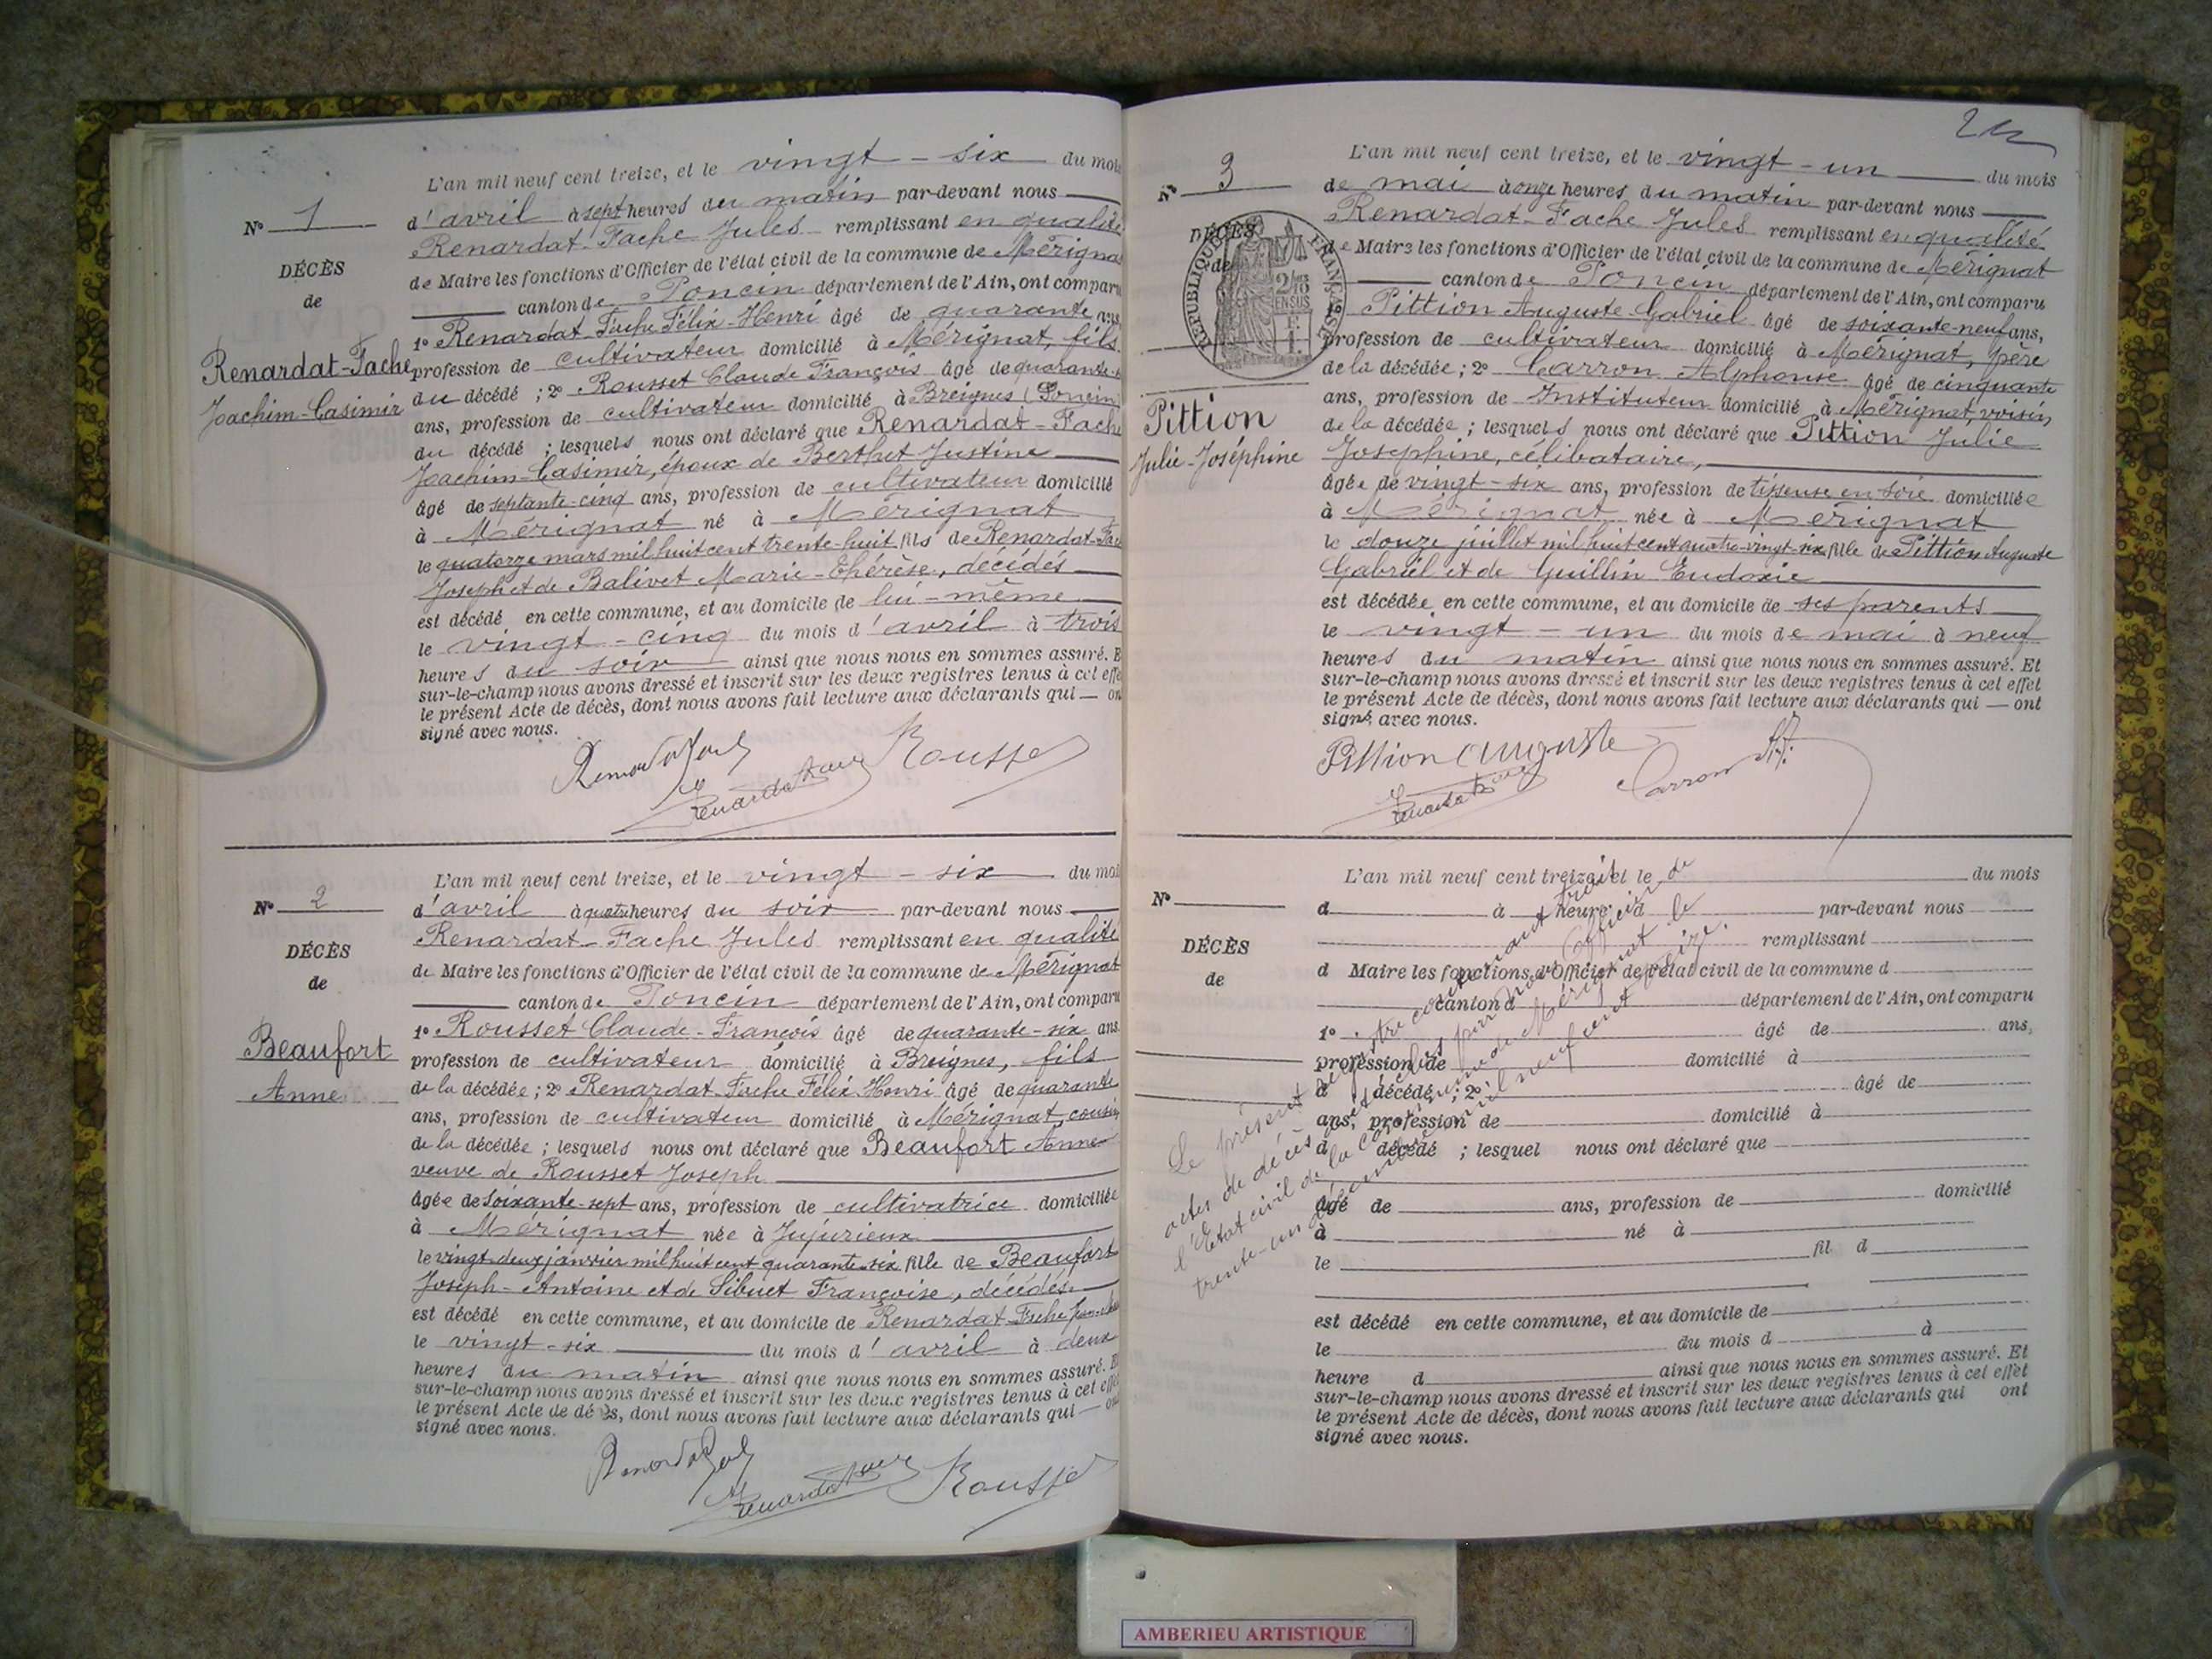 L'an mil neuf cent treize, et le vingt-six du mois
d'avril à sept heures du matin par-devant nous
Renardat-Fache Jules remplissant en qualité
de Maire les fonctions d'Officier de l'état civil de la commune de Mérigna
canton de Poncin département de l'Ain, ont comparu
1° Renardat-Fache Félix-Henri âgé de quarante ans,
profession de cultivateur domicilié à Mérignat, fils
du décédé ; 2° Rousset Claude François âgé de quarante-s
ans, profession de cultivateur domicilié à Breignes (Poncin)
du décédé ; lesquels nous ont déclaré que Renardat-Fache
Joachim-Casimir, époux de Berthet Justine
âgé de septante-cinq ans, profession de cultivateur domicilié
à Mérignat né à Mérignat
le quatorze mars mil huit cent trente-huit fils de Renardat-Fac
Joseph et de Balivet Marie-Thérèse, décédés
est décédé en cette commune, et au domicile de lui-même
le vingt-cinq du mois d'avril à trois
heures du soir ainsi que nous nous en sommes assuré. E
sur-le-champ nous avons dressé et inscrit sur les deux registres tenus à cet effe
le présent Acte de décès, dont nous avons fait lecture aux déclarants qui — on
signé avec nous.
N° 1
DÉCÈS
de
Renardat-Fache
Joachim-Casimir
Rousset
L'an mil neuf cent treize, et le vingt-six du moi
d'avril à quatre heures du soir par-devant nous
Renardat-Fache Jules remplissant en qualité
de Maire les fonctions d'Officier de l'état civil de la commune de Mérignat
canton de Poncin département de l'Ain, ont comparu
1° Rousset Claude-François âgé de quarante-six ans
profession de cultivateur domicilié à Breignes, fils
de la décédée ; 2° Renardat Fache Félix Henri âgé de quarante
ans, profession de cultivateur domicilié à Mérignat, cousin
de la décédée ; lesquels nous ont déclaré que Beaufort Anne
veuve de Rousset Joseph
âgée de soixante-sept ans, profession de cultivatrice domiciliée
à Mérignat née à Jujurieux
le vingt-deux janvier mil huit cent quarante-six fille de Beaufort
Joseph-Antoine et de Sibuet Françoise, décédés
est décédé en cette commune, et au domicile de Renardat-Fache
le vingt-six du mois d'avril à deux
heures du matin ainsi que nous nous en sommes assuré. E
sur-le-champ nous avons dressé et inscrit sur les deux registres tenus à cet effe
le présent Acte de décès, dont nous avons fait lecture aux déclarants qui — on
signé avec nous.
N° 2
DÉCÈS
de
Beaufort
Anne
Rousset
L'an mil neuf cent treize, et le vingt-un du mois
de mai à onze heures du matin par-devant nous
Renardat-Fache Jules remplissant en qualité
de Maire les fonctions d'Officier de l'état civil de la commune de Mérignat
canton de Poncin département de l'Ain, ont comparu
Pittion Auguste Gabriel âgé de soixante-neuf ans,
profession de cultivateur domicilié à Mérignat, père
de la décédée ; 2° Carron Alphonse âgé de cinquante
ans, profession de Instituteur domicilié à Mérignat, voisin
de la décédée ; lesquels nous ont déclaré que Pittion Julie
Josephine, célibataire,
âgée de vingt-six ans, profession de tisseuse en soie domiciliée
à Mérignat née à Mérignat
le douze juillet mil huit cent quatre-vingt-six fille de Pittion Auguste
Gabriel et de Guillin Eudoxie
est décédée en cette commune, et au domicile de ses parents
le vingt-un du mois de mai à neuf
heures du matin ainsi que nous nous en sommes assuré. Et
sur-le-champ nous avons dressé et inscrit sur les deux registres tenus à cet effet
le présent Acte de décès, dont nous avons fait lecture aux déclarants qui — ont
signé avec nous.
N° 3
DÉCÈS
de
RÉPUBLIQUE FRANÇAISE
Pittion
Julie-Joséphine
Pittion Auguste
Carron
L'an mil neuf cent treize, et le du mois
d à heure d par-devant nous
remplissant
d Maire les fonctions d'Officier de l'état civil de la commune d
canton d département de l'Ain, ont comparu
1° âgé de ans,
profession de domicilié à
d décédé ; 2° âgé de
ans, profession de domicilié à
d décédé ; lesquel nous ont déclaré que
âgé de ans, profession de domicilié
à né à
le fil d
est décédé en cette commune, et au domicile de
le du mois d à
heure d ainsi que nous nous en sommes assuré. Et
sur-le-champ nous avons dressé et inscrit sur les deux registres tenus à cet effet
le présent Acte de décès, dont nous avons fait lecture aux déclarants qui ont
signé avec nous.
N°
DÉCÈS
de
Le présent registre contenant trois
actes de décès par nous Officier de
l'Etat civil de la commune de Mérignat le
trente-un décembre mil neuf cent treize.
AMBERIEU ARTISTIQUE